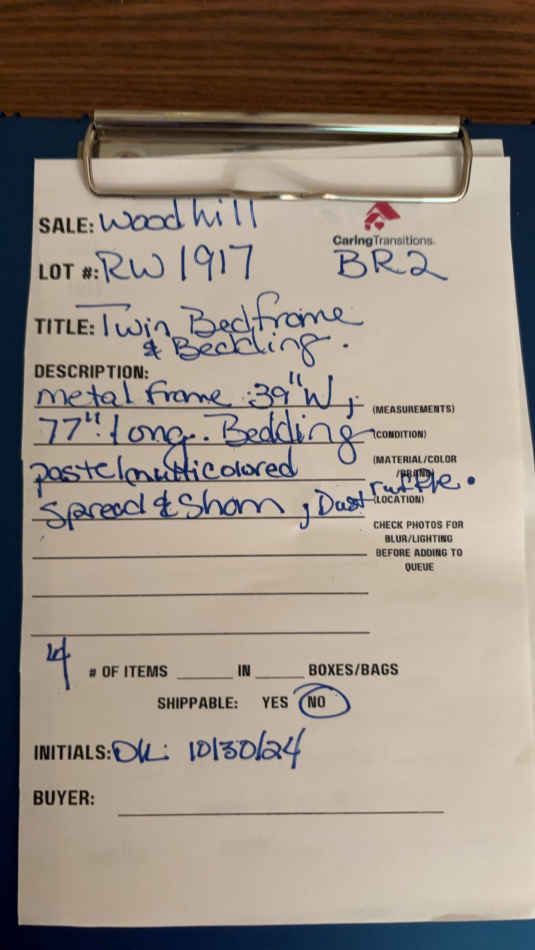 SALE: Woodhill
CaringTransitions.
LOT #: RW 1917 BR2
TITLE: Twin Bedframe
& Bedding.
DESCRIPTION:
metal frame 39"W,
(MEASUREMENTS)
77" long. Bedding
(CONDITION)
pastel multicolored
(MATERIAL/COLOR
/BRAND)
Spread & Sham, Dust ruffle.
(LOCATION)
CHECK PHOTOS FOR
BLUR/LIGHTING
BEFORE ADDING TO
QUEUE
4 # OF ITEMS IN BOXES/BAGS
SHIPPABLE: YES NO
INITIALS: DK: 10/30/24
BUYER: